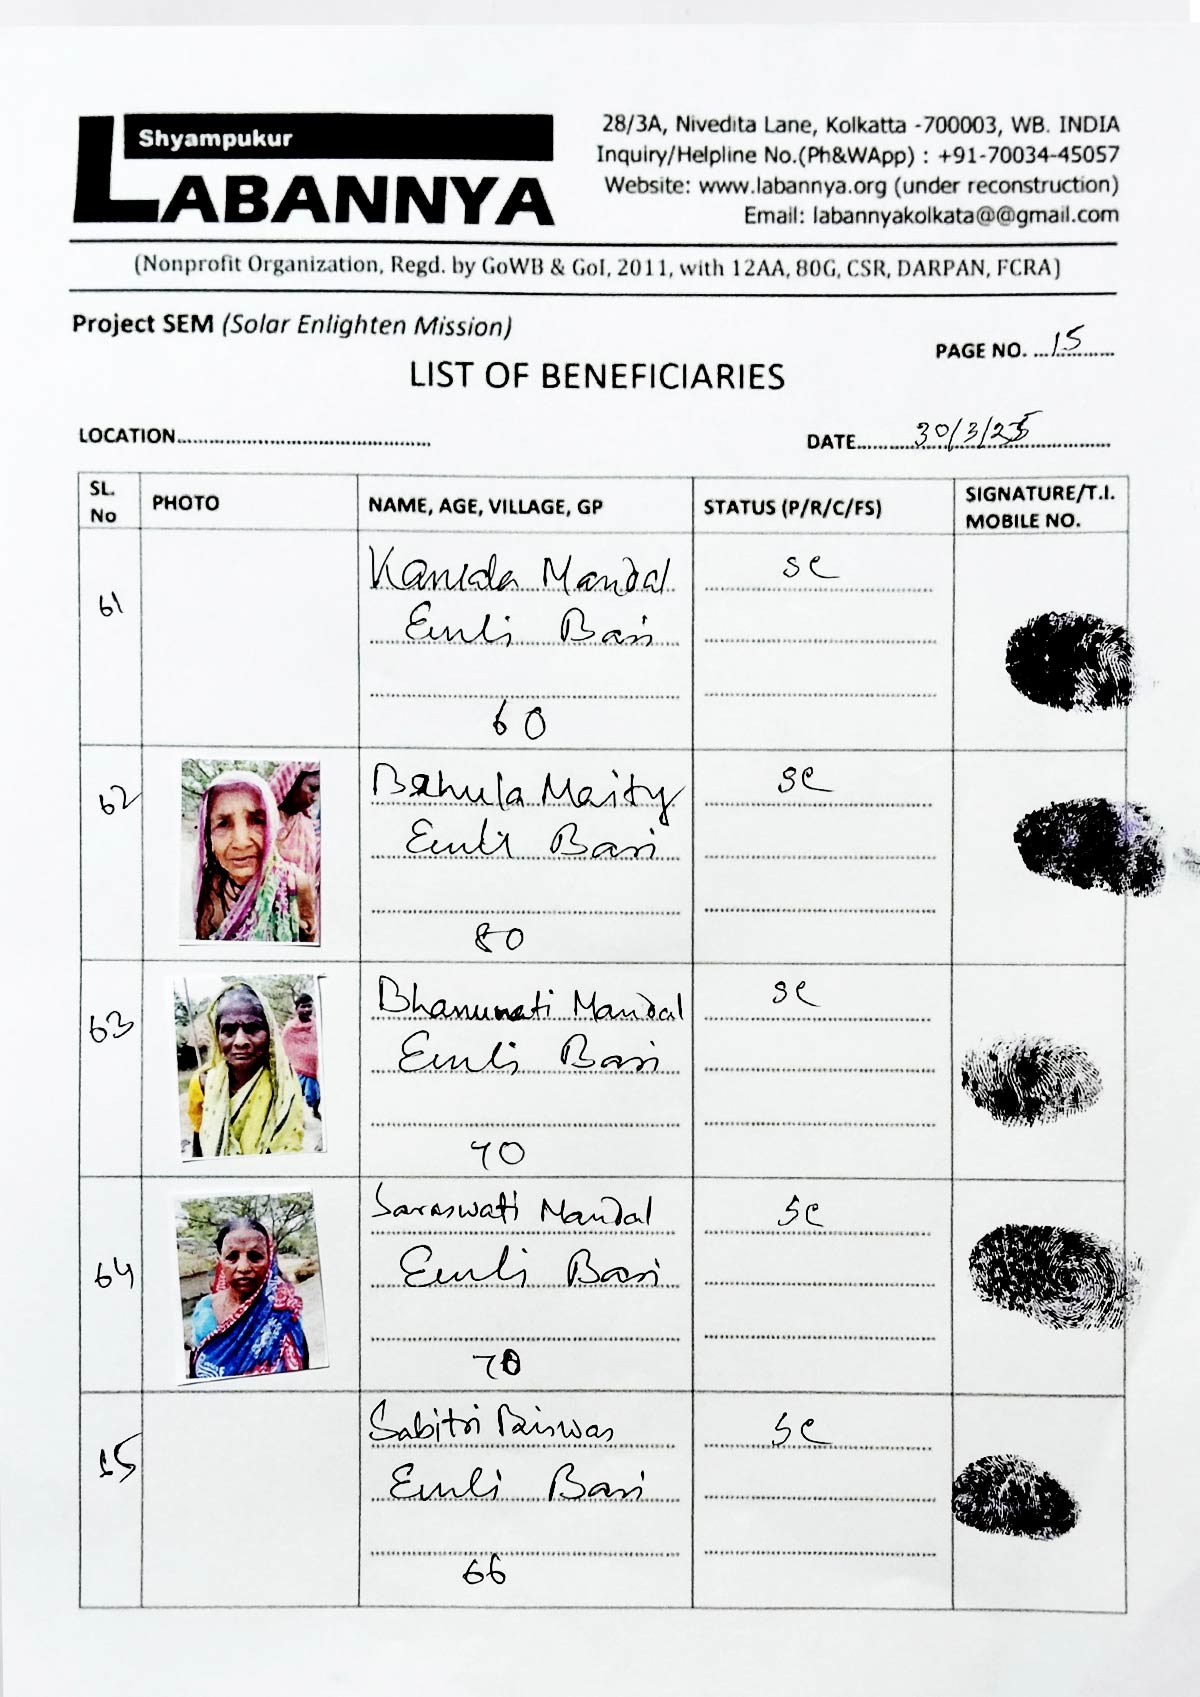 Shyampukur
LABANNYA
28/3A, Nivedita Lane, Kolkatta -700003, WB. INDIA
Inquiry/Helpline No.(Ph&WApp) : +91-70034-45057
Website: www.labannya.org (under reconstruction)
Email: labannyakolkata@@gmail.com
(Nonprofit Organization, Regd. by GoWB & GoI, 2011, with 12AA, 80G, CSR, DARPAN, FCRA)
Project SEM (Solar Enlighten Mission)
PAGE NO. ...15...........
LIST OF BENEFICIARIES
LOCATION................................................
DATE..........30/3/25....................
SL. No PHOTO NAME, AGE, VILLAGE, GP STATUS (P/R/C/FS) SIGNATURE/T.I. MOBILE NO.
61 Mandal SC
Emli Bari
60
62 Behula Maity SC
Emli Bari
80
63 Bhanumati Mandal SC
Emli Bari
70
64 Saraswati Mandal SC
Emli Bari
70
Sabitri Biswas SC
Emli Bari
66